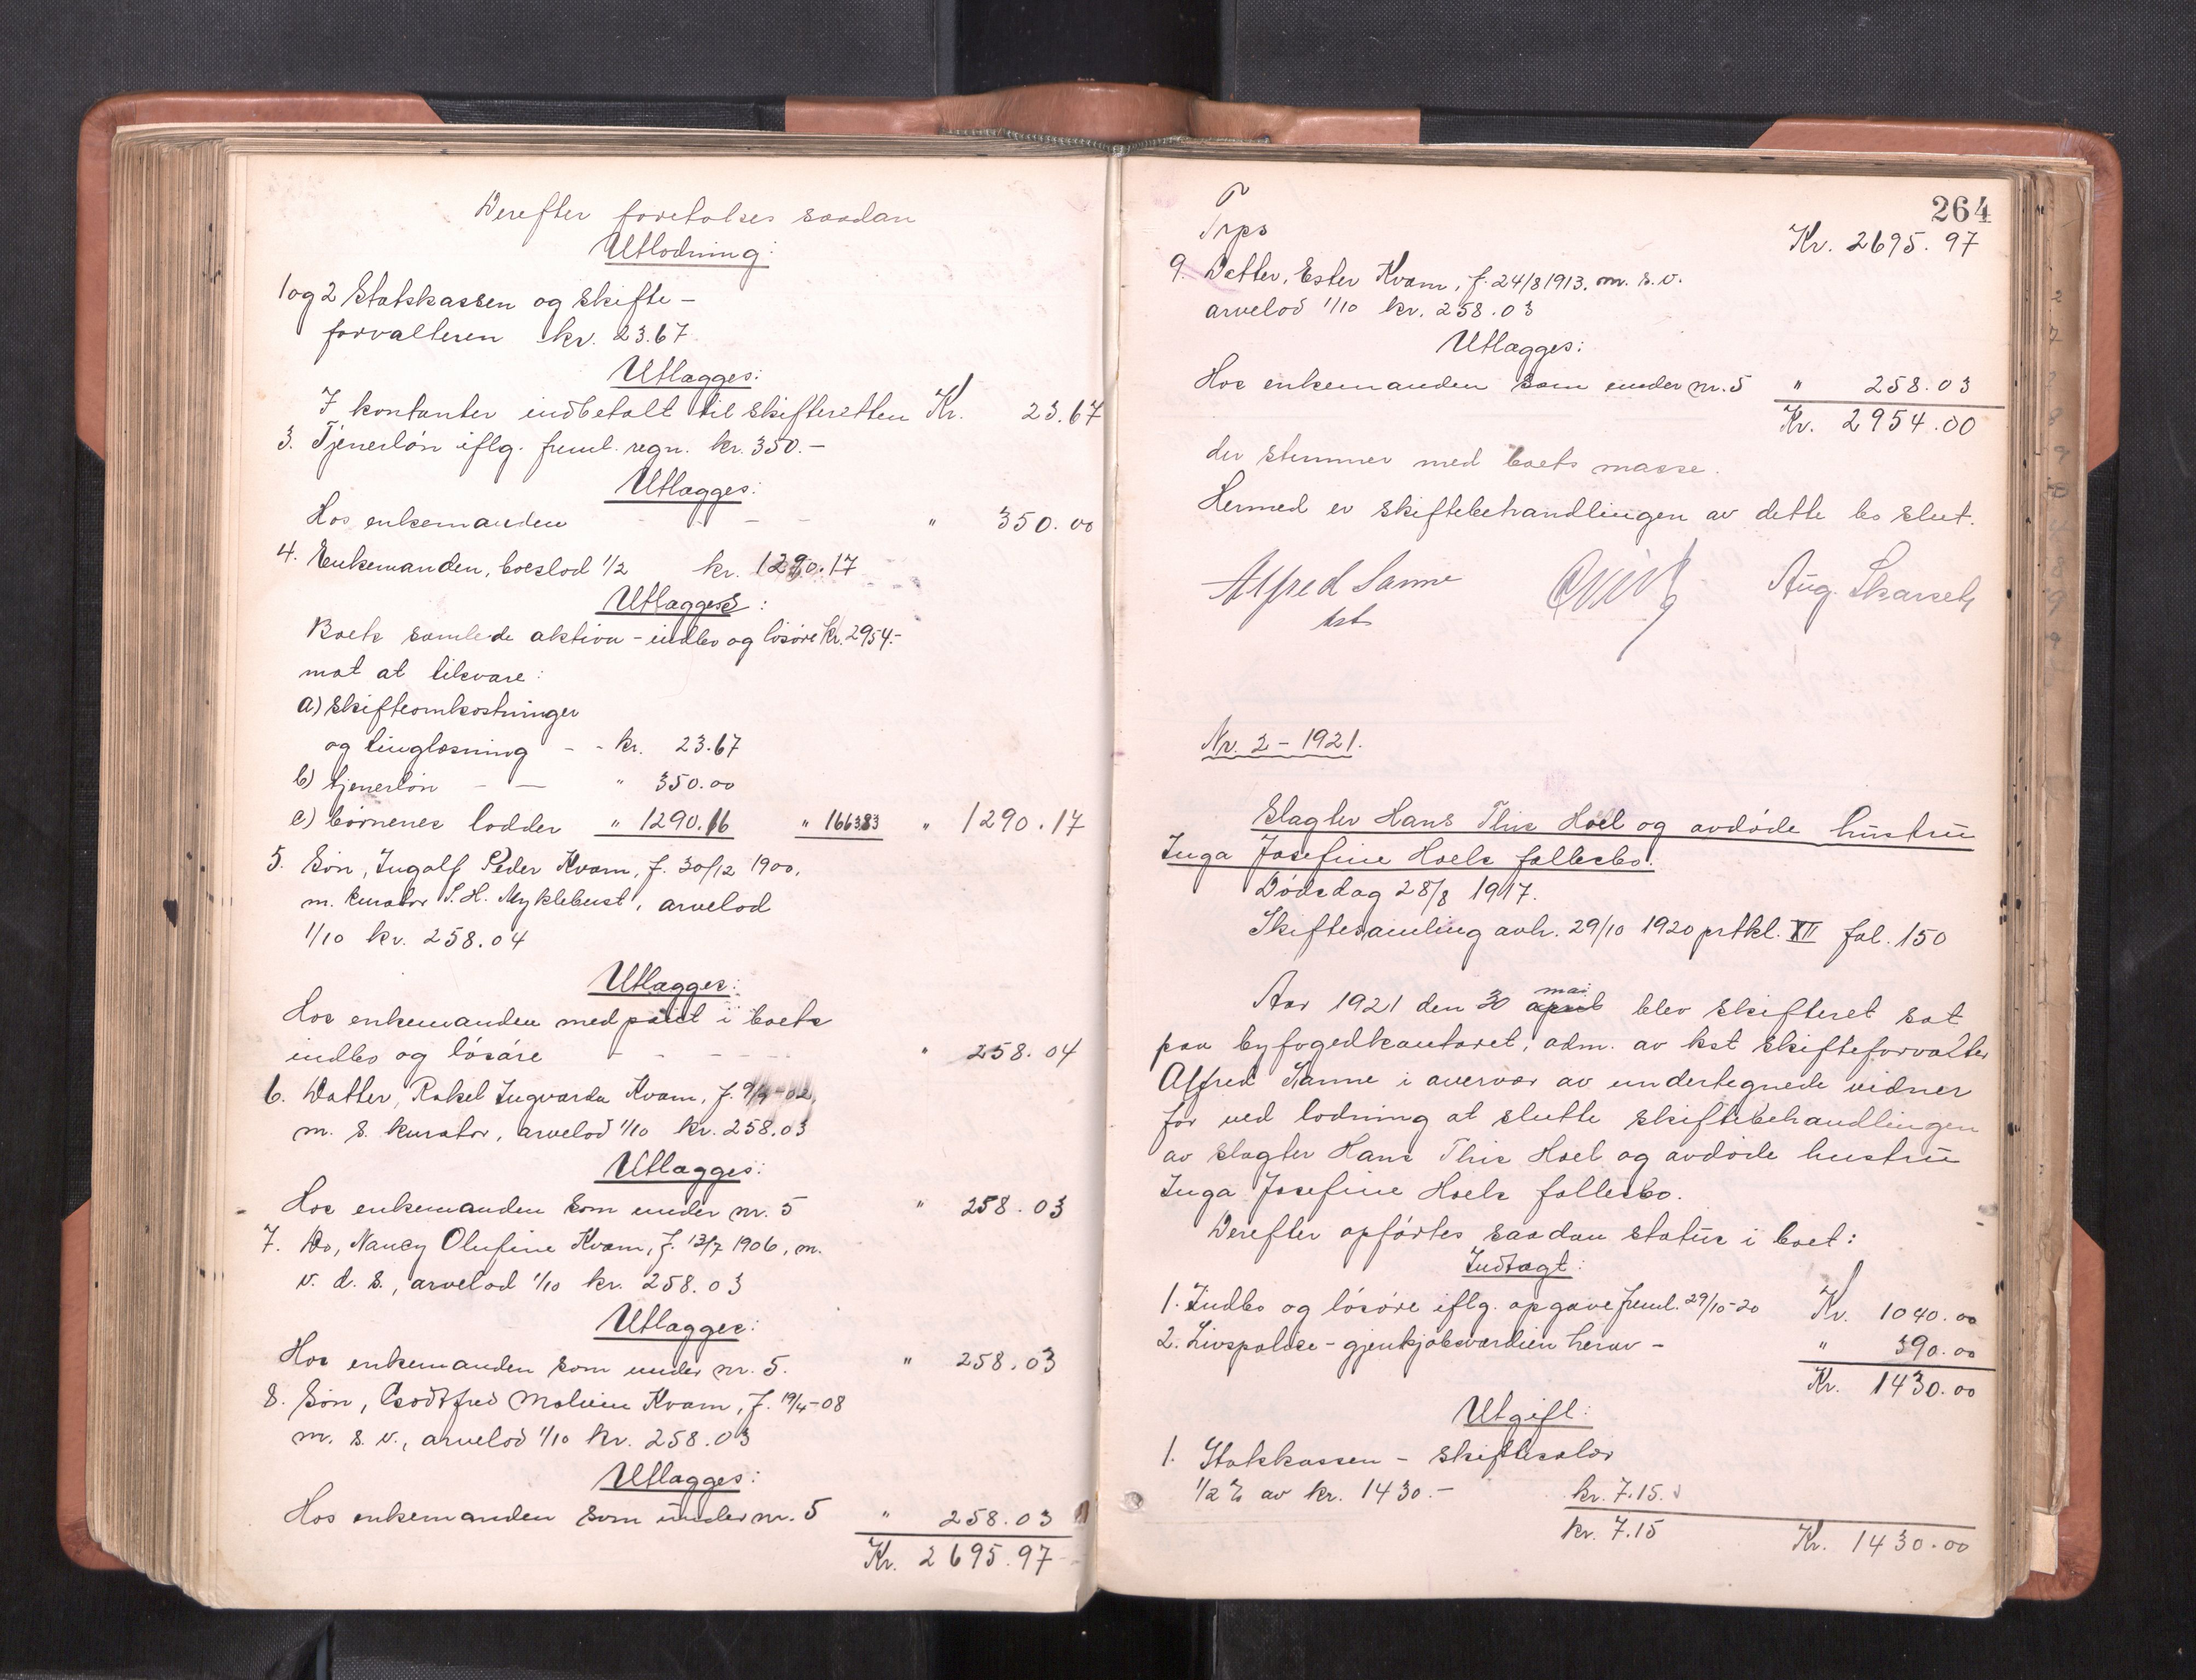 Derefter foretokes saadan
Utlodning:
1 og 2 Statskassen og skifte-
forvalteren kr. 23.67
Utlægges:
I kontanter indbetalt til skifteretten Kr. 23.67
3. Tjenerløn iflg. freml. regn. kr. 350.-
Utlægges:
Hos enkemanden - - - " 350.00
4. Enkemanden, boeslod 1/2 kr. 1290.17
Utlægges:
Boets samlede aktiva - indbo og løsøre kr. 2954.-
mot at tilsvare:
a) Skifteomkostninger
og tinglæsning - - kr. 23.67
b) tjenerløn - - " 350.00
c) børnenes lodder " 1290.16 " 1663.83 " 1290.17
5. Søn, Ingolf Peder Kvam, f. 30/12 1900,
m. kurator S. H. Myklebust, arvelod
1/10 kr. 258.04
Utlægges:
Hos enkemanden med pant i boets
indbo og løsøre - - - - " 258.04
6. Datter, Rakel Ingvarda Kvam, f. 9/9-02,
m. s. kurator, arvelod 1/10 kr. 258.03
Utlægges:
Hos enkemanden som under nr. 5 " 258.03
7. Do, Nancy Olufine Kvam, f. 13/7 1906, m.
v. d. s., arvelod 1/10 kr. 258.03
Utlægges:
Hos enkemanden som under nr. 5. " 258.03
8. Søn, Godtfred Molvin Kvam, f. 19/4-08
m. s. v., arvelod 1/10 kr. 258.03
Utlægges:
Hos enkemanden som under nr. 5 " 258.03
Kr. 2695.97
264
Trps Kr. 2695.97
9. Datter, Ester Kvam, f. 24/8 1913. m. s. v.
arvelod 1/10 kr. 258.03
Utlægges:
Hos enkemanden som under nr. 5 " 258.03
Kr. 2954.00
der stemmer med boets masse.
Hermed er skiftebehandlingen av dette bo slut.
Alfred Sanne Aug. Skarseth
kst
Nr. 2 - 1921.
Slagter Hans This Hoel og avdøde hustru
Inga Josefine Hoels fællesbo.
Dødsdag 28/8 1917.
Skiftesamling avh. 29/10 1920 prtkl. XII fol. 150
Aar 1921 den 30 april mai blev skifteret sat
paa byfogedkontoret, adm. av kst skifteforvalter
Alfred Sanne i overvær av undertegnede vidner
for ved lodning at slutte skiftebehandlingen
av slagter Hans This Hoel og avdøde hustru
Inga Josefine Hoels fællesbo.
Derefter opførtes saadan status i boet:
Indtægt:
1. Indbo og løsøre iflg. opgave freml. 29/10-20 Kr. 1040.00
2. Livspolise - gjenkjøbsværdien herav - " 390.00
Kr. 1430.00
Utgift:
1. Statskassen - skiftesalær
1/2 % av kr. 1430.- kr. 7.15.
kr. 7.15 Kr. 1430.00